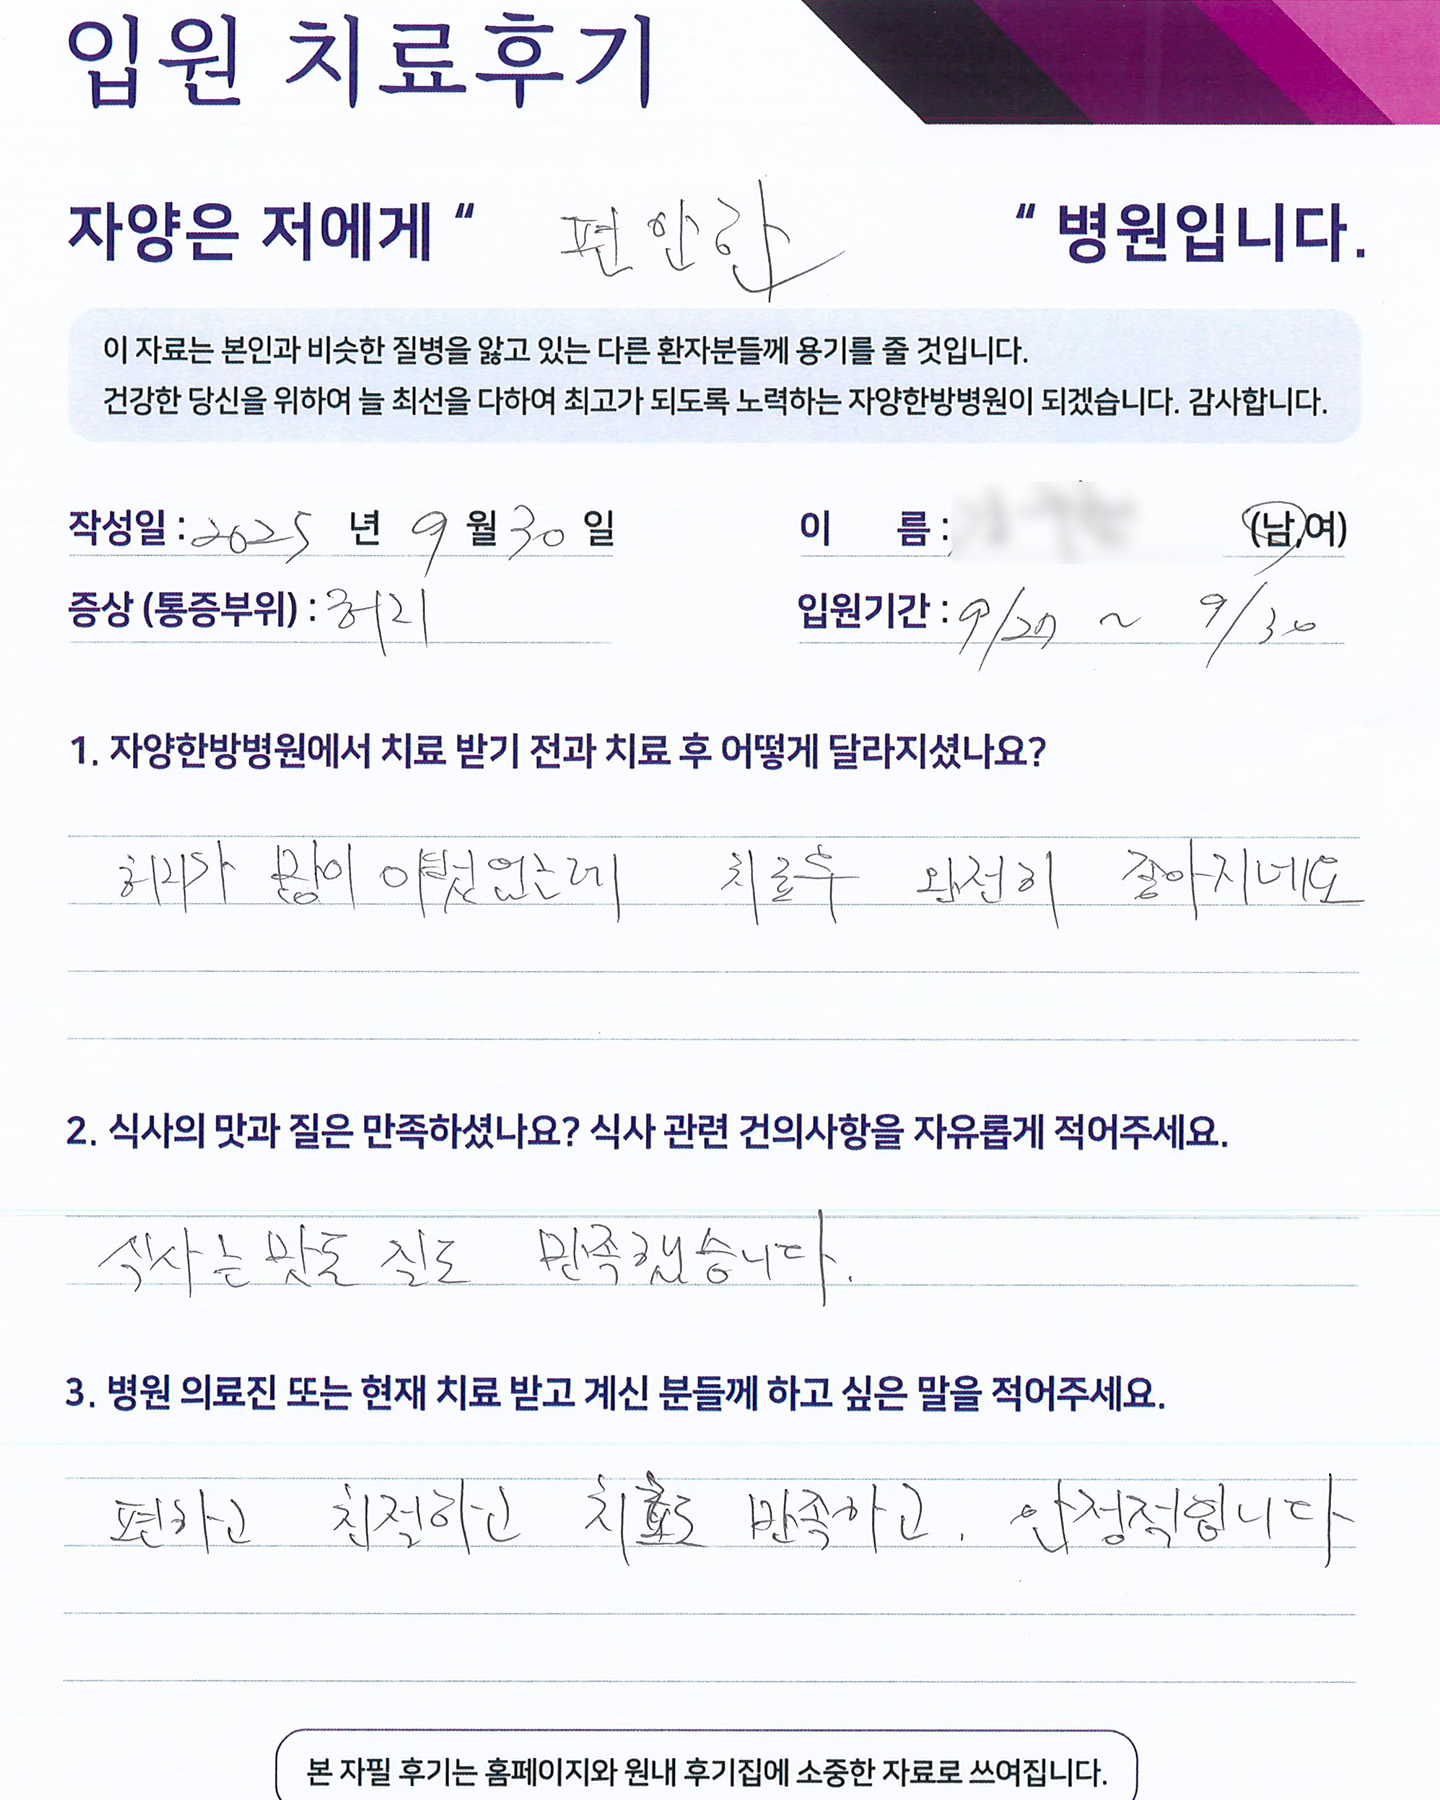 입원 치료후기
자양은 저에게 “ 편안한 “ 병원입니다.
이 자료는 본인과 비슷한 질병을 앓고 있는 다른 환자분들께 용기를 줄 것입니다.
건강한 당신을 위하여 늘 최선을 다하여 최고가 되도록 노력하는 자양한방병원이 되겠습니다. 감사합니다.
작성일 : 2025 년 9 월 30 일 이 름 : (남,여)
증상 (통증부위) : 허리 입원기간 : 9/27 ~ 9/30
1. 자양한방병원에서 치료 받기 전과 치료 후 어떻게 달라지셨나요?
허리가 치료후 완전히 좋아지네요
2. 식사의 맛과 질은 만족하셨나요? 식사 관련 건의사항을 자유롭게 적어주세요.
식사는 맛도 질도 만족했습니다.
3. 병원 의료진 또는 현재 치료 받고 계신 분들께 하고 싶은 말을 적어주세요.
편하고 친절하고 치료도 만족하고. 안정적입니다
본 자필 후기는 홈페이지와 원내 후기집에 소중한 자료로 쓰여집니다.